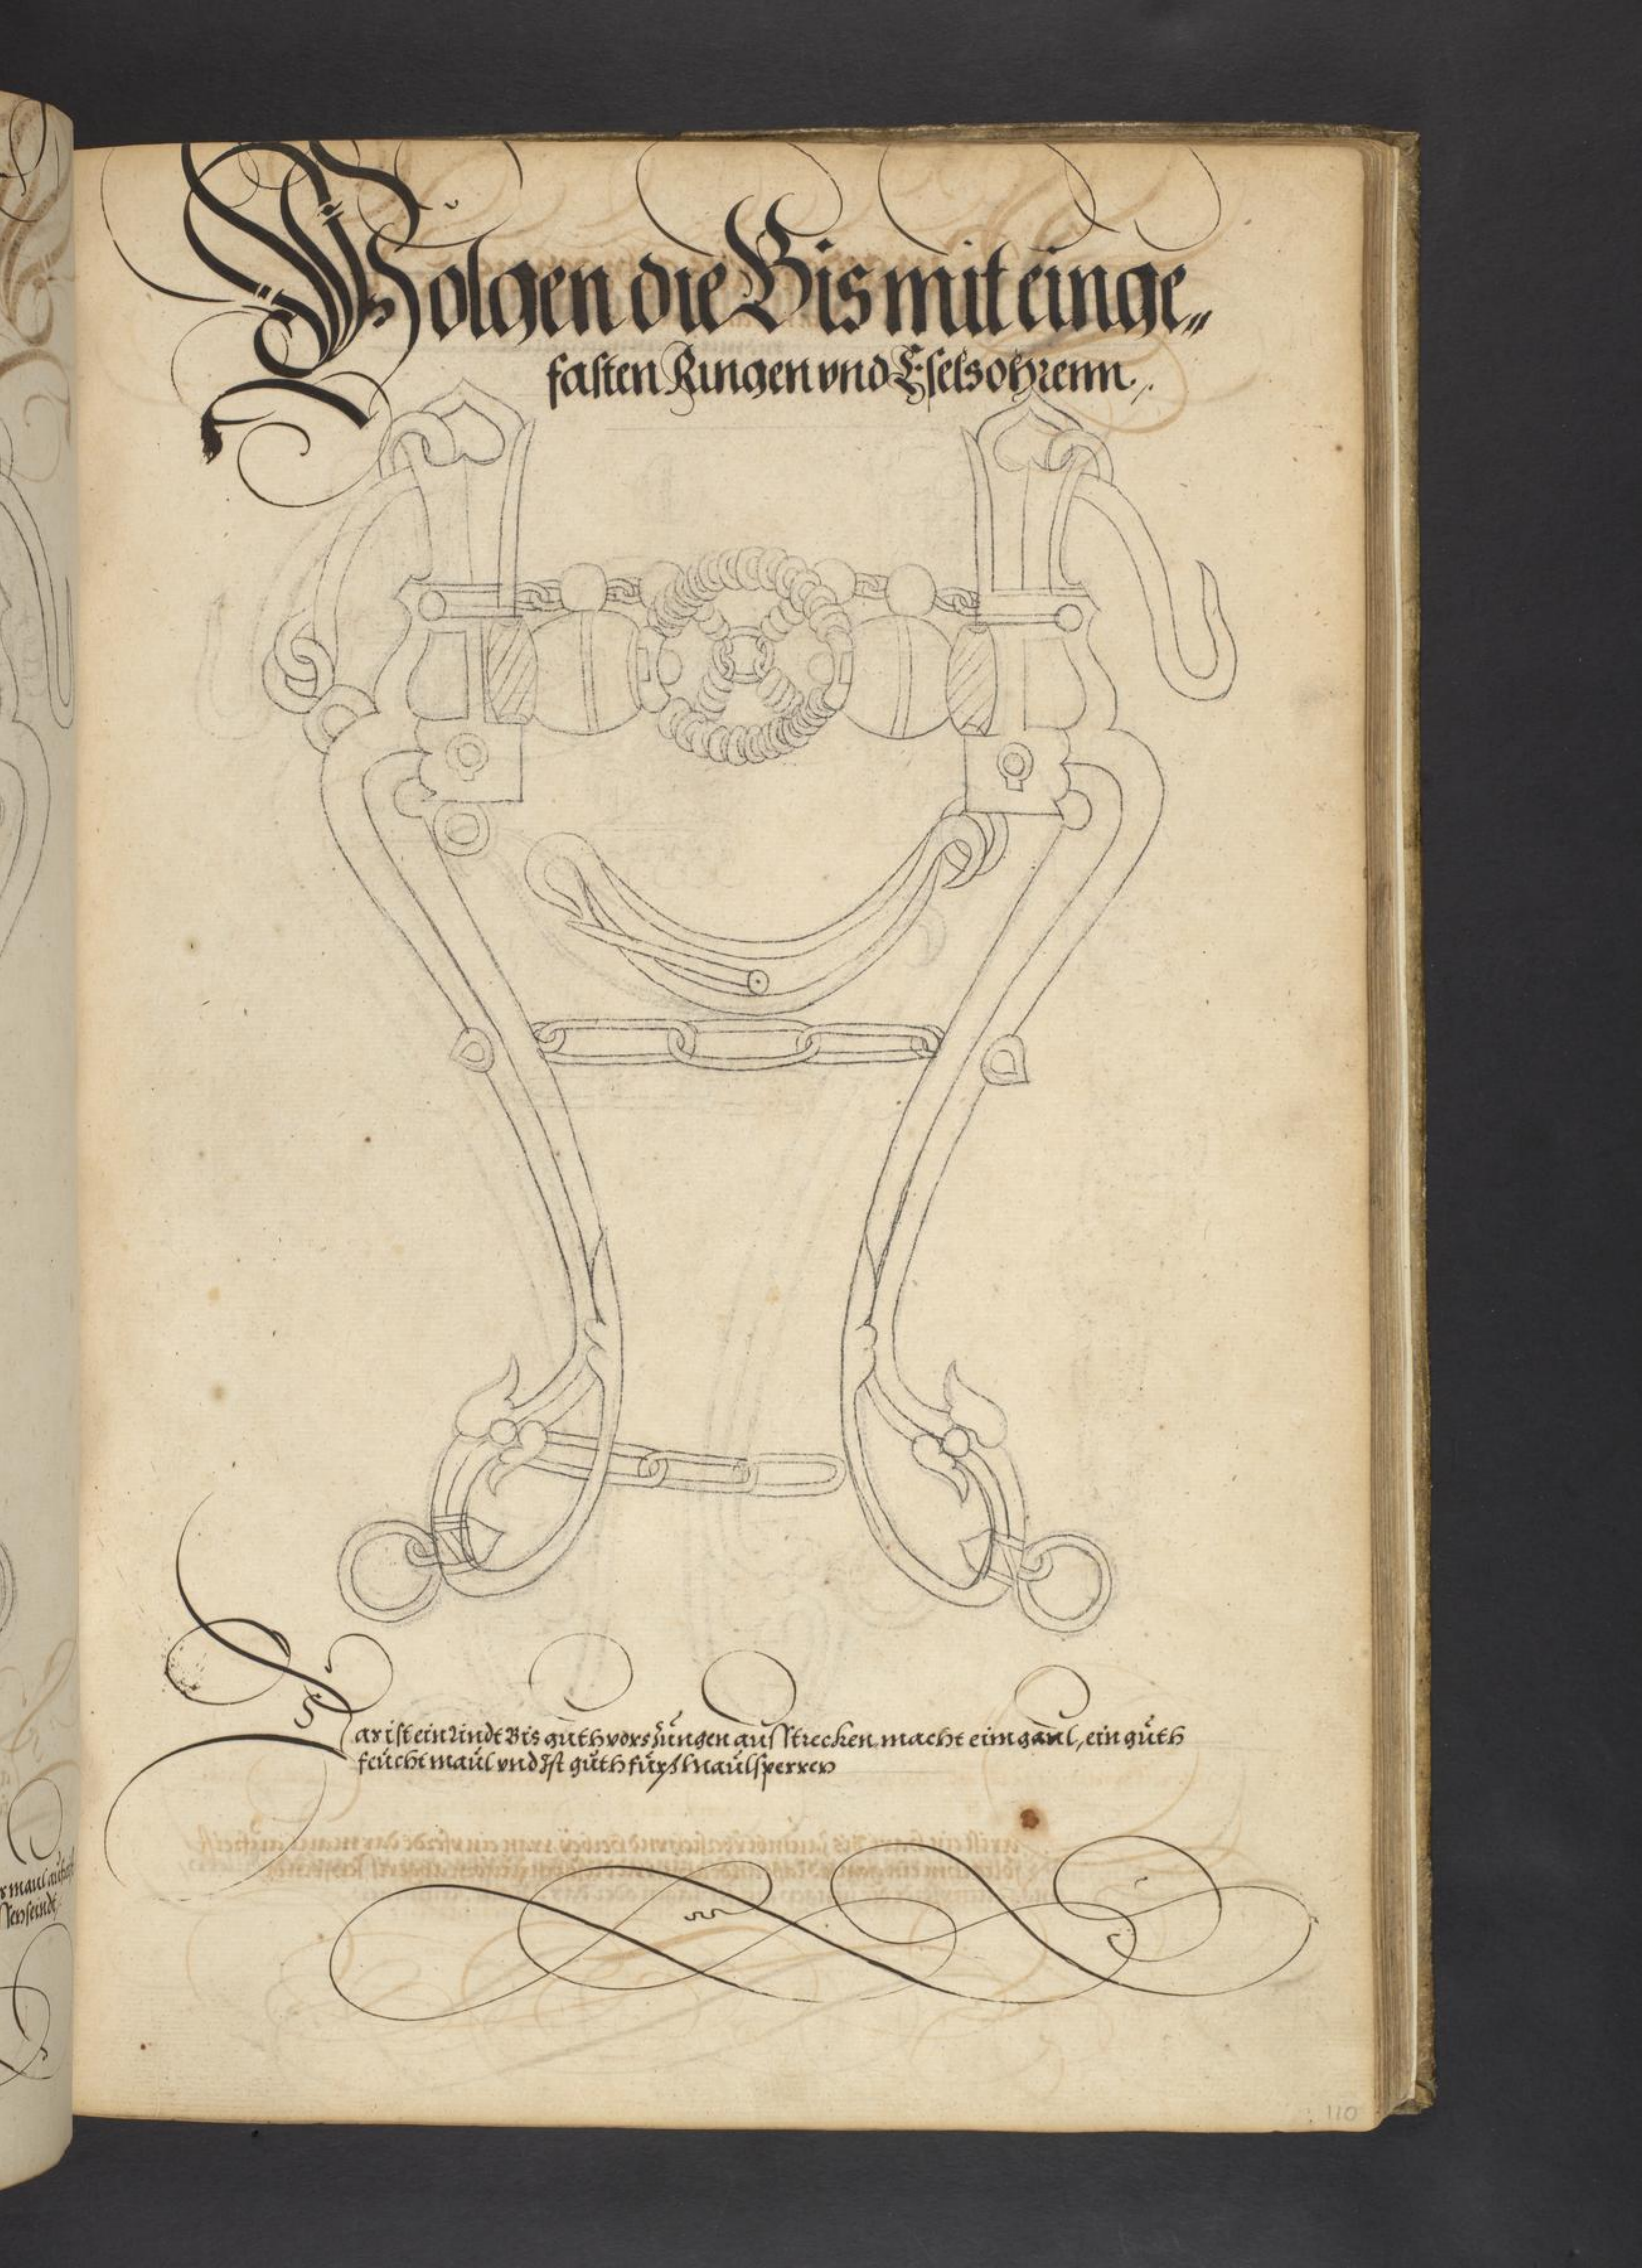 Volgen die Bis mit einge„
fasten Ringen vnd Eselsohrenn.
ar ist ein lindt Bis guth vors Züngen aus strecken, macht eim gaul, ein guth
feücht maül vnd Ist guth fürs Maülsperren
110